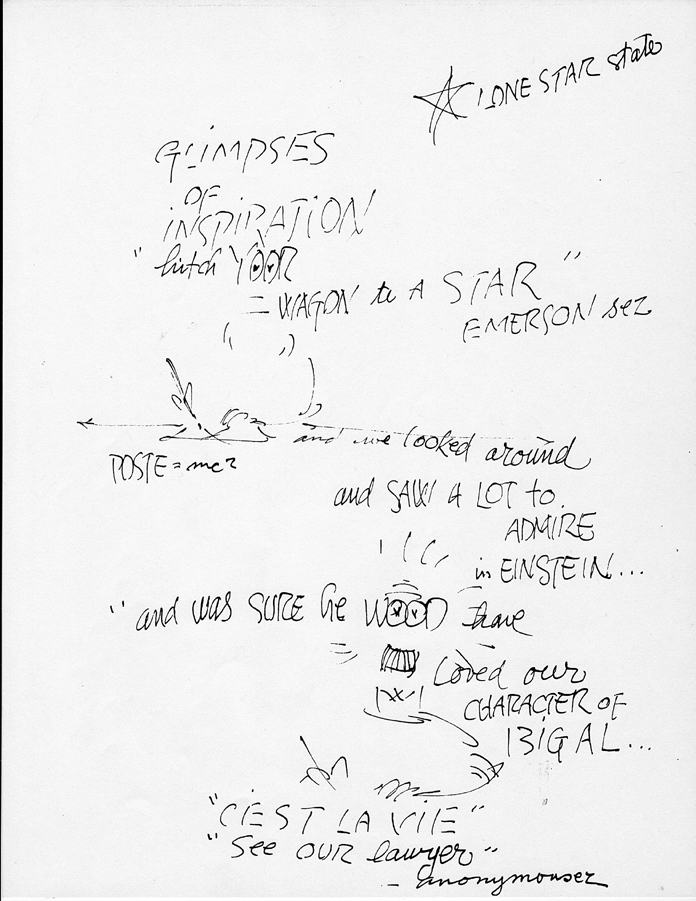 LONE STAR state
GLIMPSES
OF
INSPIRATION
" hitch YOOR
= WAGON to A STAR "
EMERSON sez
and we looked around
POSTE = mc2
and SAW A LOT to
ADMIRE
in EINSTEIN...
"and was SURE he WOOD have
Loved our
CHARACTER OF
BIG AL...
"C'EST LA VIE"
"See OUR lawyer"
- anonymouser